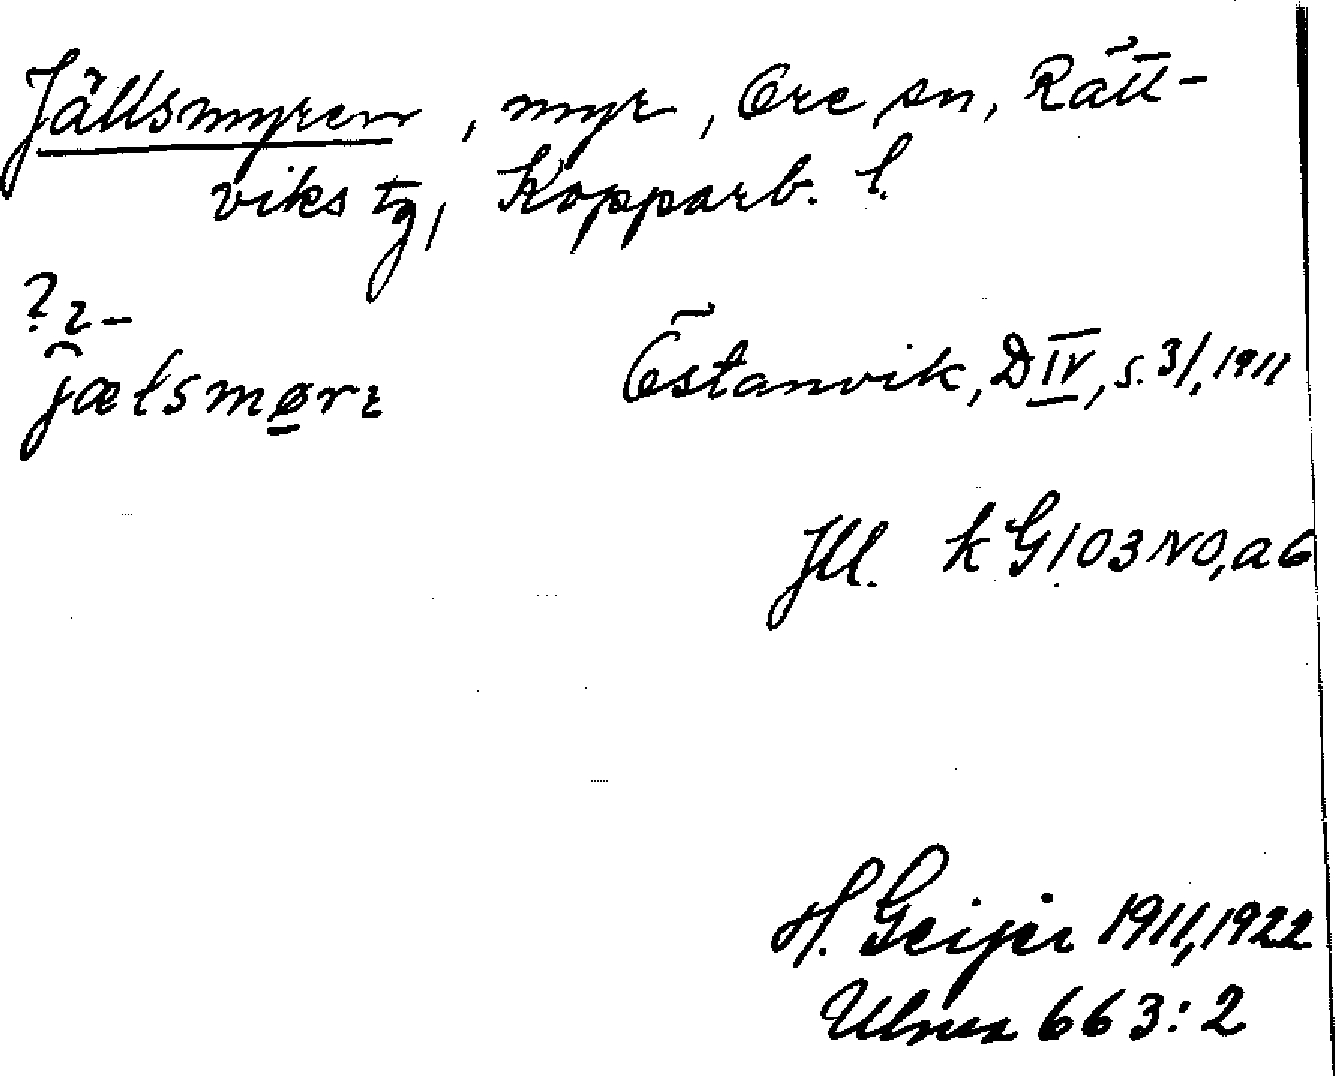 Jällsmyren, myr, Ore sn, Rätt-
viks tg, Kopparb. l.
? ɿ-
jætsmørɿ Östanvik, D IV, s. 31, 1911
Jll. k G 103 NO, a 6
H. Geijer 1911, 1922
Ulma 663:2